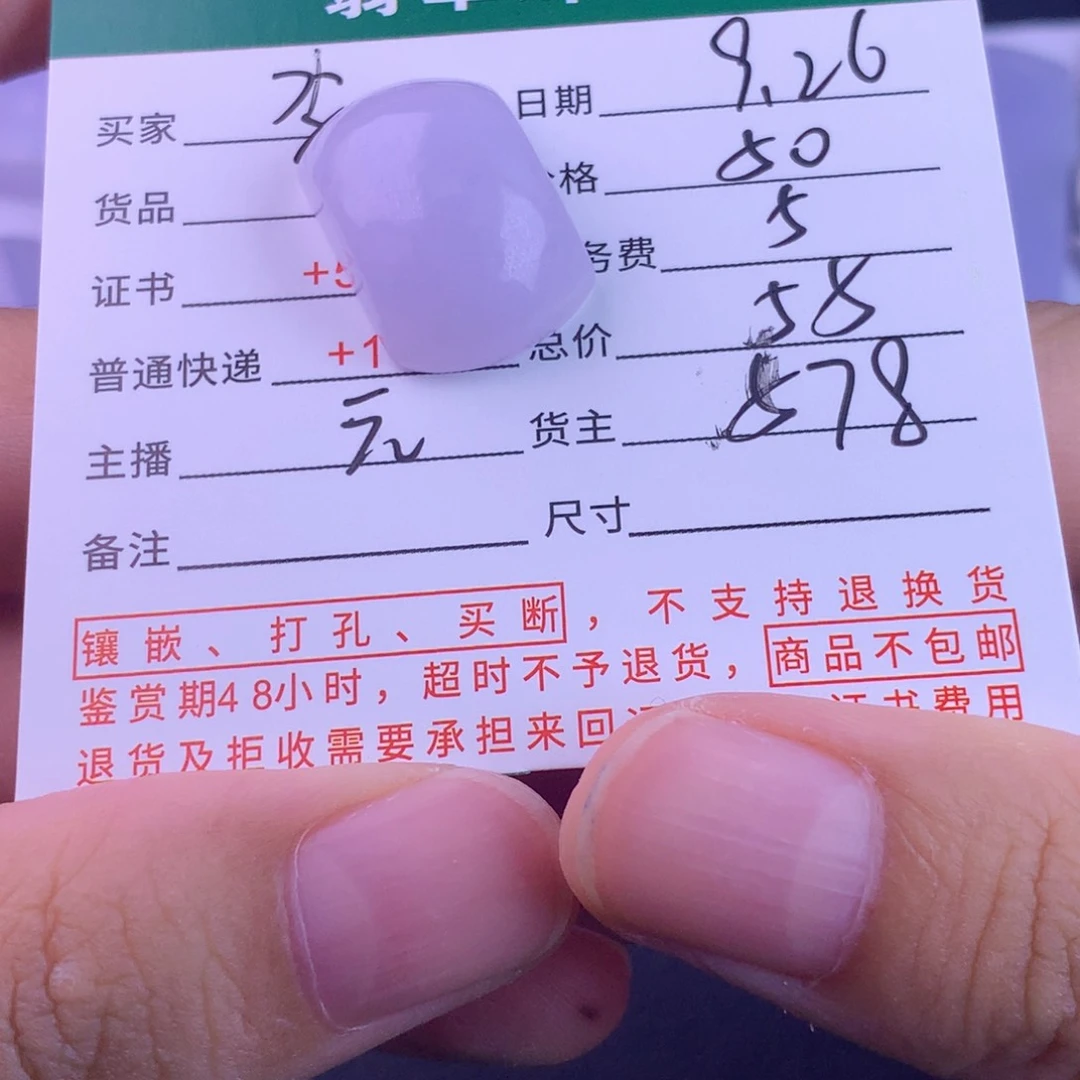 买家 日期 9.26
货品 格 50
证书 +5 务费 5
普通快递 +1 总价 58
主播 元 货主 578
备注 尺寸
镶嵌、打孔、买断，不支持退换货
鉴赏期48小时，超时不予退货，商品不包邮
退货及拒收需要承担来回 证书费用